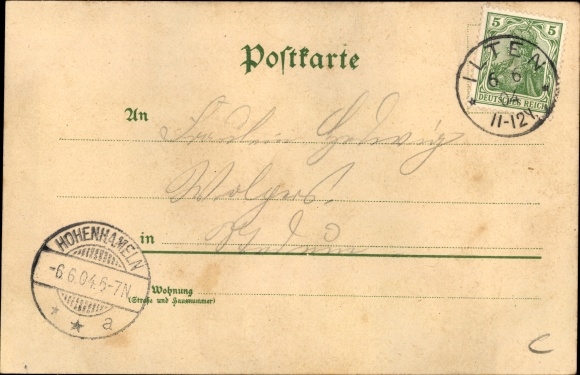 Postkarte
5 5
DEUTSCHES REICH
ILTEN
6 6
04
11-12V.
An
Fräulein Hedwig
Wolpers,
in
HOHENHAMELN
-6.6.04.6-7N.
* * a
Wohnung
(Straße und Hausnummer)
C